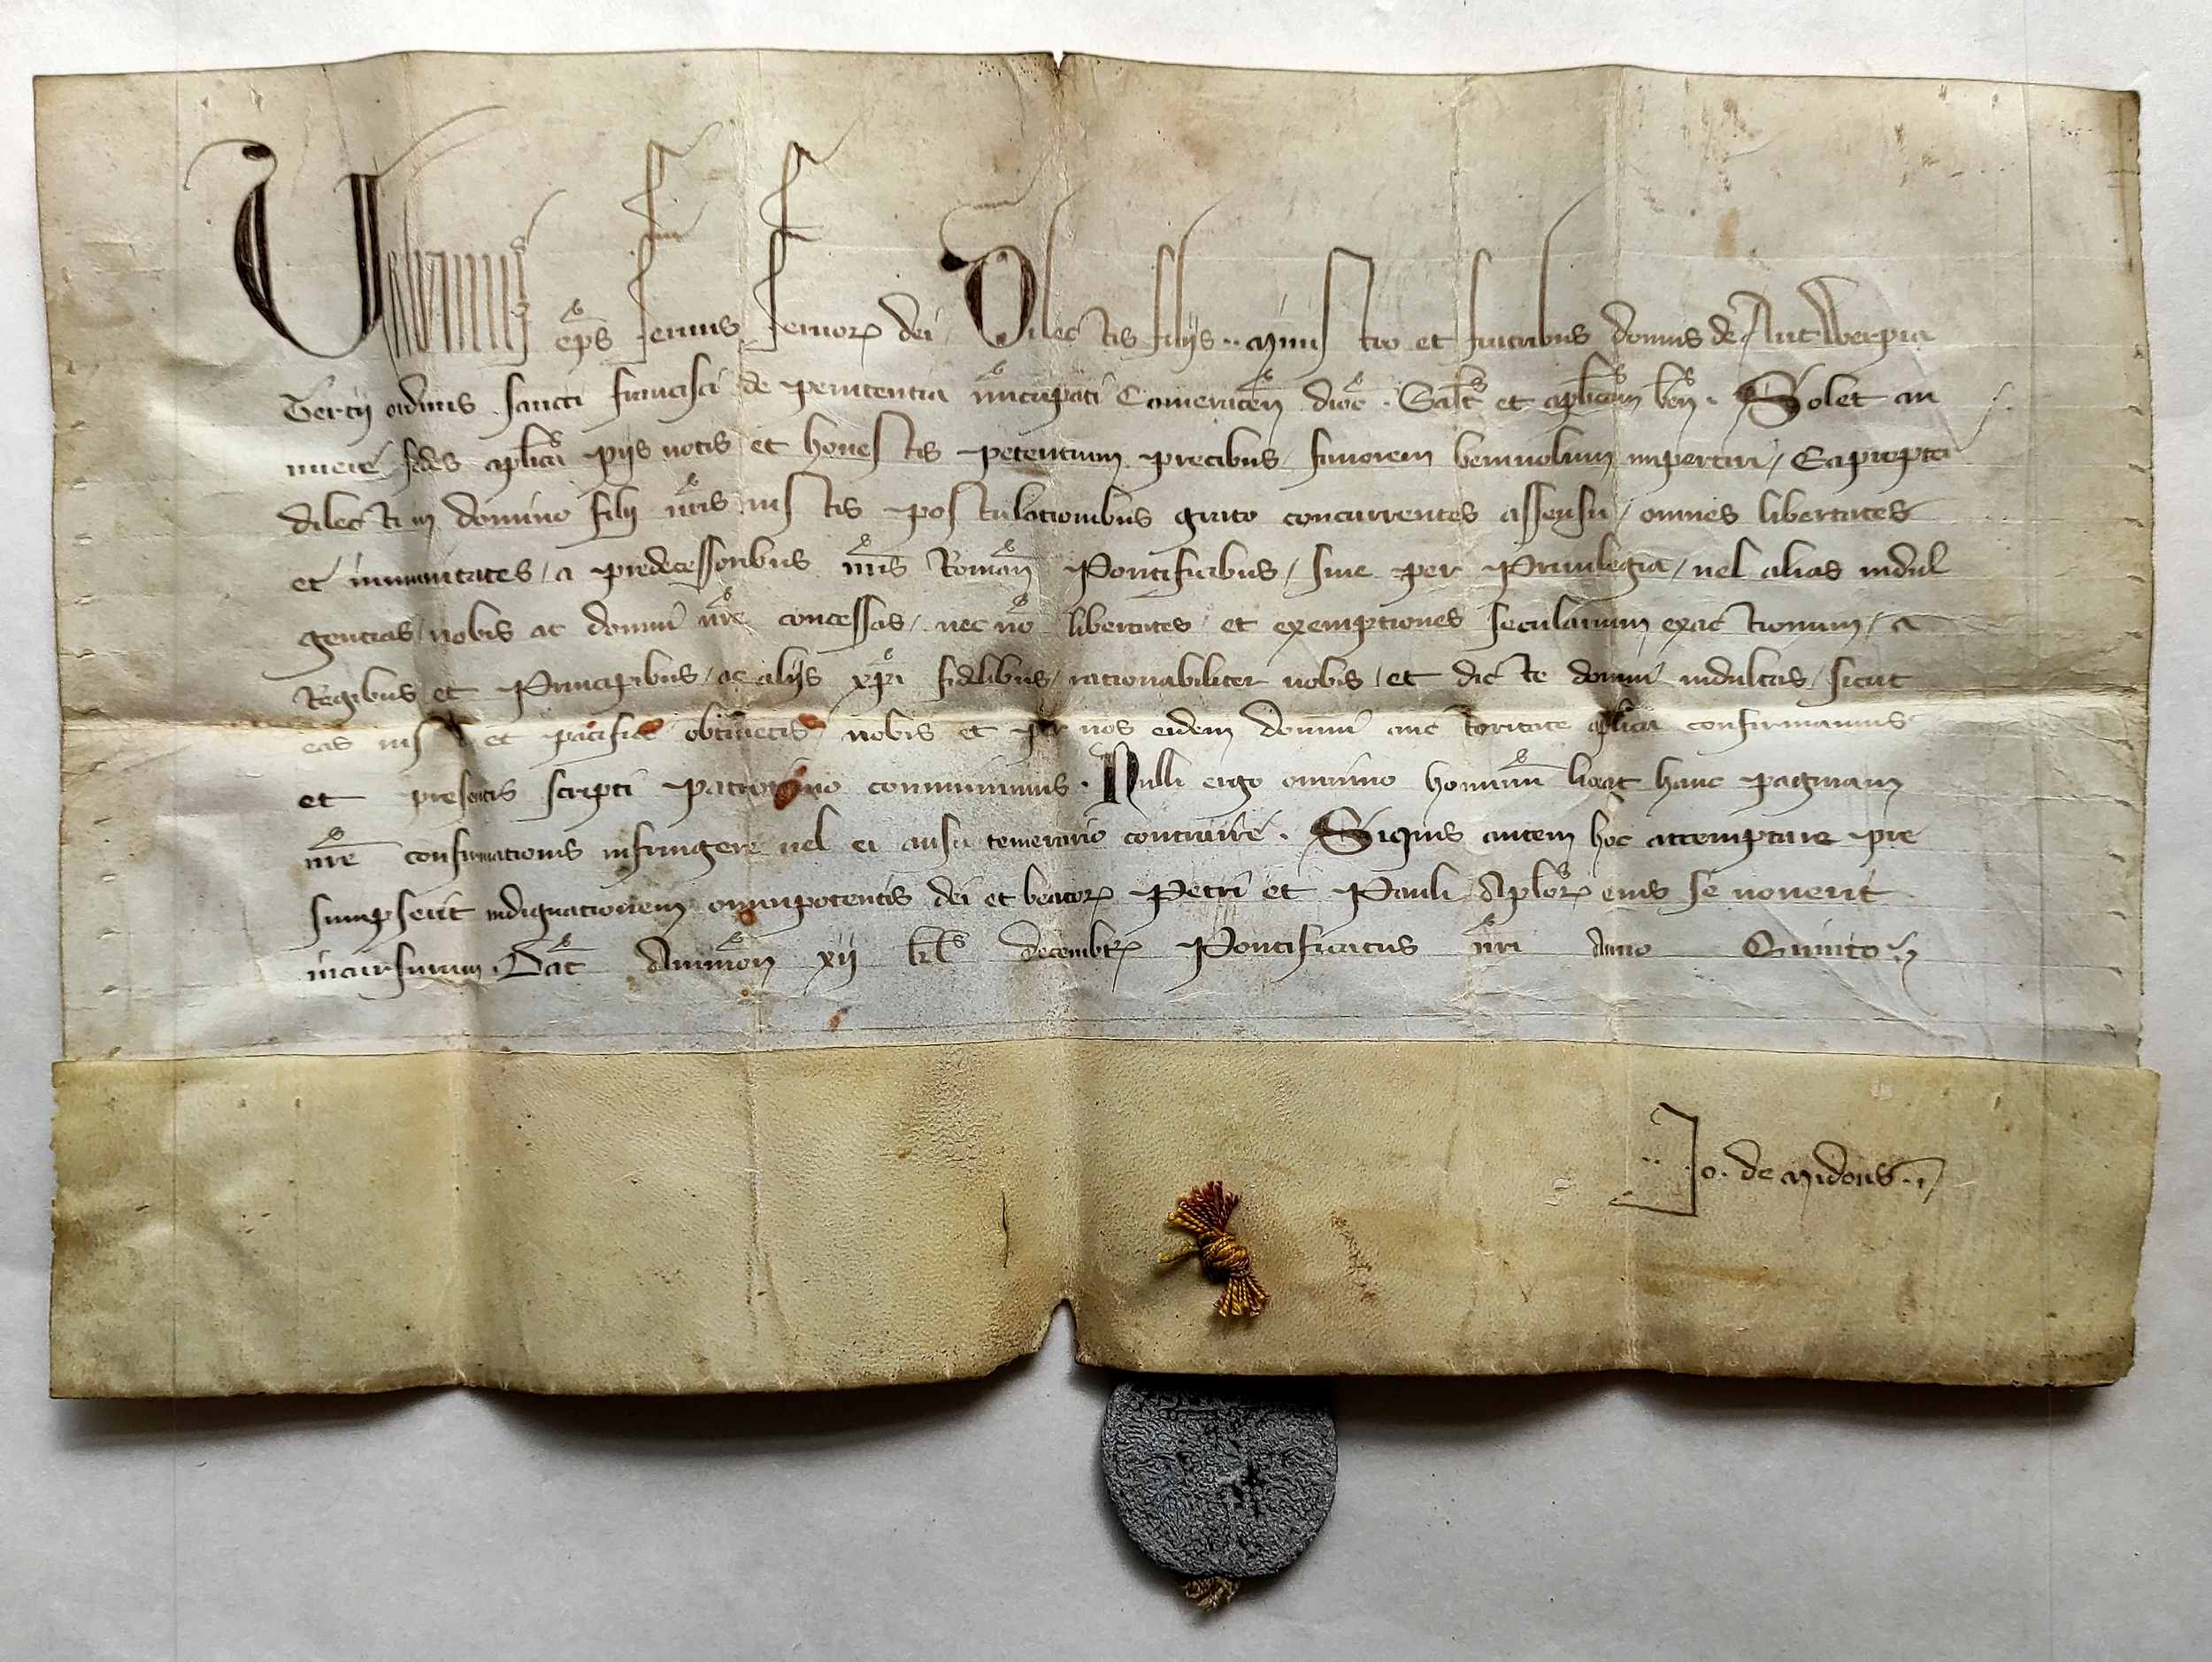 Urbanus ep̄s seruus seruorꝝ dei Dilectis filijs .. Ministro et fratribus domus de Antwerpia
Tercij ordinis sancti francisci de penitentia nūcupati Cameracen̄ dioc̄ . Salt̄ et aplicam̄ ben̄ . Solet an
nuere sedes aplica pijs uotis et honestis petentium precibus / fauorem beniuolum impertiri / Eapropter
dilecti in domino filij ur̄is iustis postulationibus grato concurrentes assensu / omnes libertates
et immunitates / a predecessoribus nr̄is Roman̄ Pontificibus / siue per Priuilegia / uel alias indul
gentias / uobis ac domui ur̄e concessas / nec nō libertates / et exemptiones secularium exactionum / a
Regibus et Principibus / ac alijs xp̄i fidelibus / rationabiliter uobis / et dicte domui indultas / sicut
eas iuste et pacifice obtinetis uobis et per uos eidem domui auctoritate aplica confirmamus
et presentis scripti patrocinio communimus . Nulli ergo omnino hominum̄ liceat hanc paginam
nr̄e confirmationis infringere uel ei ausu temerario contraire . Siquis autem hoc attemptare pre
sumpserit indignationem omnipotentis dei et beatorꝝ Petri et Pauli Aplorꝝ eius se nouerit
incursurum . Dat̄ Auinion̄ xij kl̄ decembrꝝ Pontificatus nr̄i Anno Quinto
Jo. de Midons .